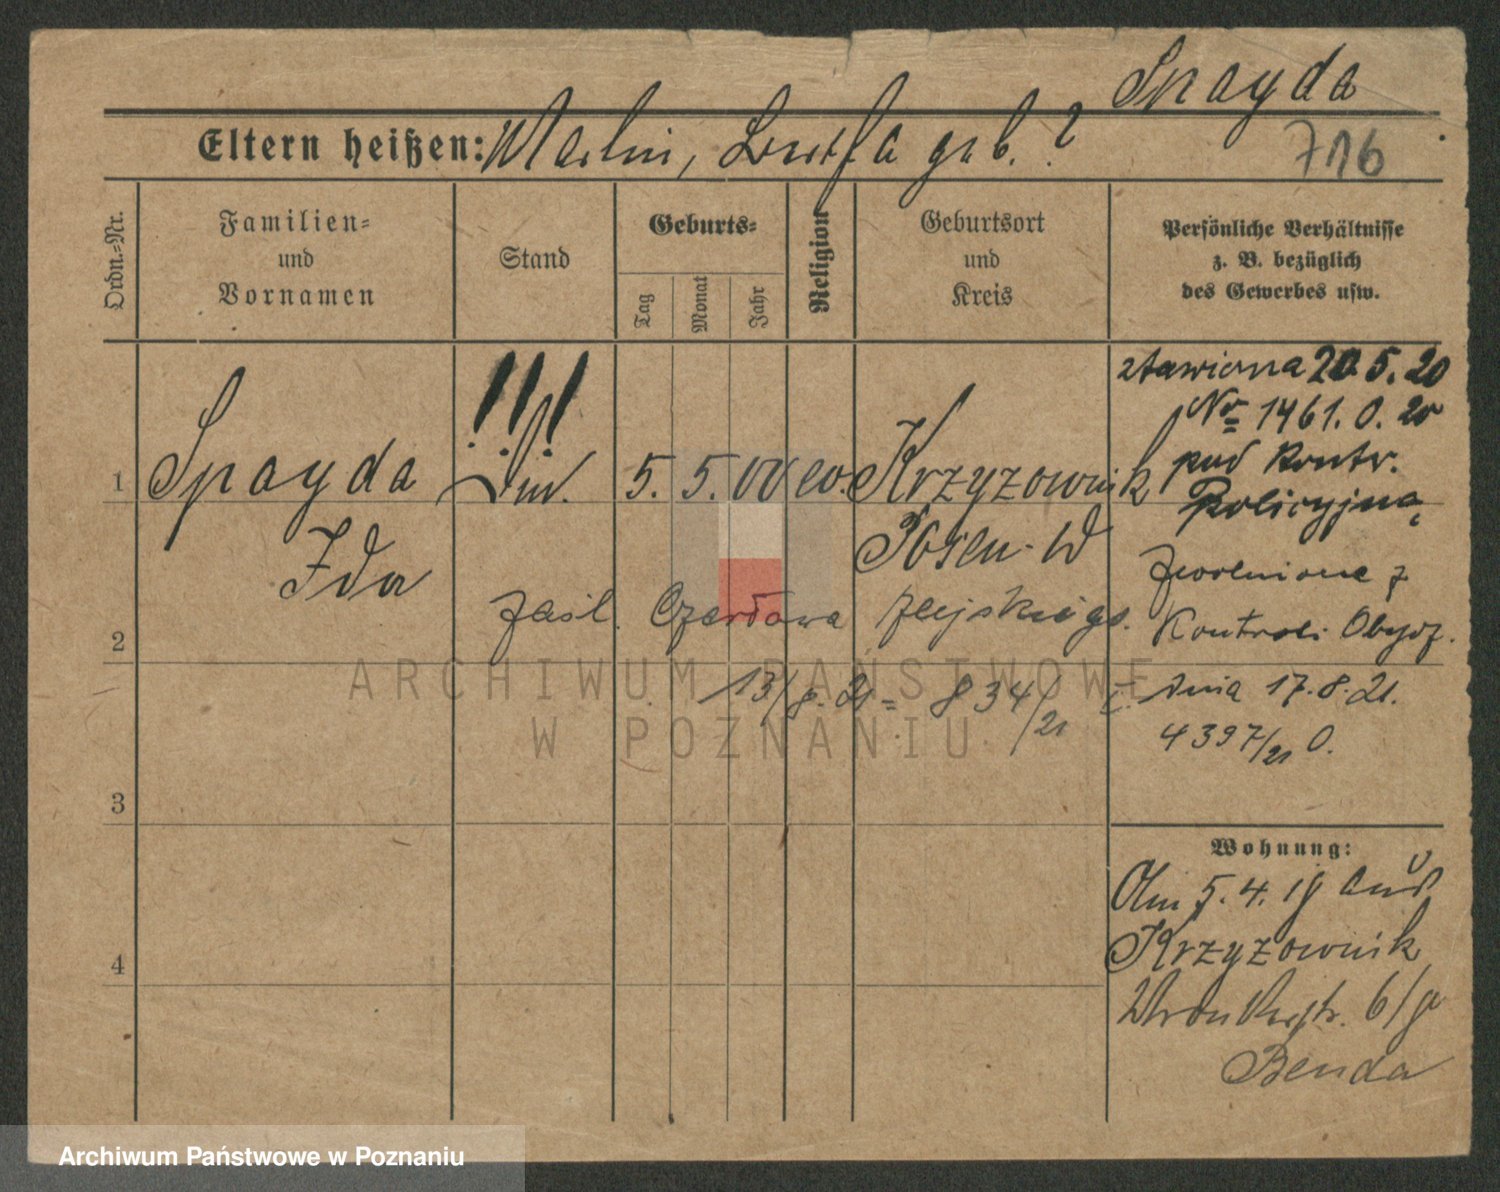 Spayda
Eltern heißen: Martin, Luisa geb. ?
716
Ordn.=Nr.
Familien=
und
Vornamen
Stand
Geburts=
Tag
Monat
Jahr
Religion
Geburtsort
und
Kreis
Persönliche Verhältnisse
z. B. bezüglich
des Gewerbes usw.
!!!
1 Spayda 5. 5. 00 ev. Krzyzownik
Ida Posen-W
stawiona 20.5.20
No 1461.O.20
pod kontr.
Policyjną
zwolniona z
Kontroli Obycz.
dnia 17.8.21.
4397/21 O.
2
zaśl. Czesława
13/8.21 = 834/21
ARCHIWUM PAŃSTWOWE
W POZNANIU
3
4
Wohnung:
Am 5.4.19 aus
Krzyzownik
Wronkerstr. 6/9
Benda
Archiwum Państwowe w Poznaniu